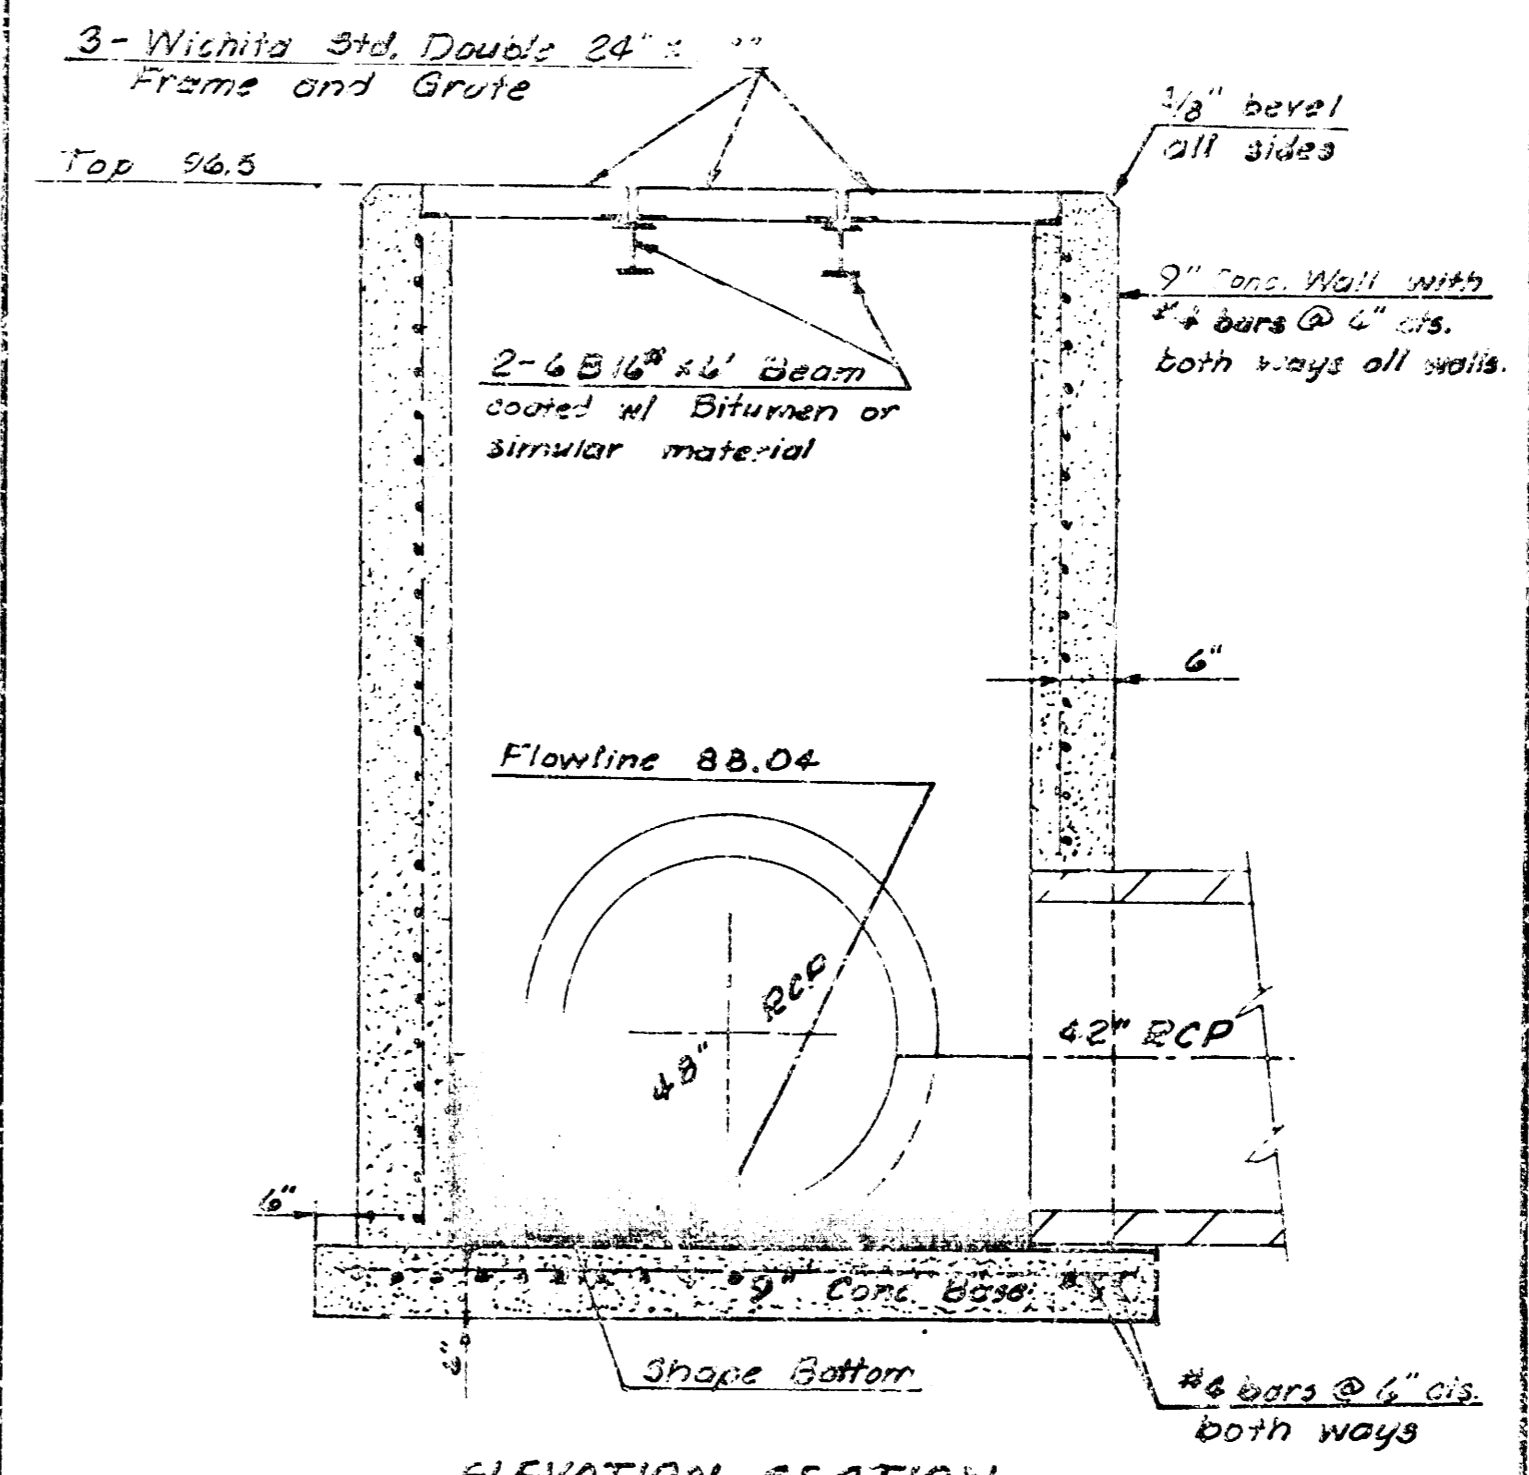 3- Wichita Std. Double 24" x
Frame and Grate
1/8" bevel
all sides
Top 96.5
9" Conc. Wall with
#4 bars @ 6" cts.
both ways all walls.
2-6 B 16# x 6' Beam
coated w/ Bitumen or
simular material
6"
Flowline 88.04
48" RCP
42" RCP
6"
9" Conc. Base
6"
Shape Bottom
#4 bars @ 6" cts.
both ways
ELEVATION SECTION